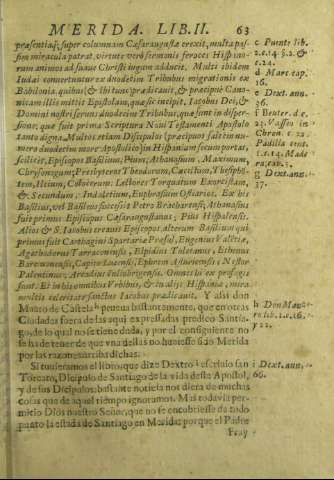 MERIDA. LIB. II. 63
præsentias; super columnam Cæsaraugustæ erexit, multa pas-
sim miracula patrat, virtute verò sermonis feroces Hispano-
rum animos ad suaue Christi iugum adducit. Multi ibidem
Iudæi conuertuntur ex duodecim Tribubus migrationis ex
Babilonia. quibus & ibi tunc prædicauit, & præcipuè Cano-
nicam illis mittit Epistolam, quæ sic incipit. Iacobus Dei, &
Domini nostri seruus duodecim Tribubus, quæ sunt in disper-
sione, quæ fuit prima Scriptura Noui Testamenti. Apostolo
sancto digna. Multos etiam Discipulos (præcipui fuere in nu-
mero duodecim more Apostolico) in Hispaniam secum portat,
scilicet, Episcopos Basilium, Pium, Athanasium, Maximum,
Chrysogonum; Presbyteros Theodorum, Cæcilium, Thesiphó-
tem,
& Secundum; Indaletium, Euphrasium Ostiarios. Ex his
Basilius, vel Basileus successit Petro Bracharensi; Athanasius
fuit primus Episcopus Cæsaraugustanus; Pius Hispalensis.
Alios & S. Iacobus creauit Episcopos, alterum Basilium qui
primus fuit Carthagini Spartariæ Præsul, Eugenius Valétiæ,
Agathodorus Tarraconensis, Elpidius Toletanus, Etherius
Barcinonensis, Capito Lucensis, Ephrem Asturicensis, Nestor
Palentinus, Arcadius Iuliobrigensis. Omnes hi ex profugis
sunt. Et in his omnibus Vrbibus, & in alijs Hispaniæ, mira
nouitis celeritate sanctus Iacobus prædicauit. Y assi don
Mauro de Castela h prueua bastantemente, que en otras
Ciudades fuera de las aqui expressadas predicó Santia-
go, de lo qual no se tiene duda, y por el consiguiente no
se ha de tener de que vna dellas no huuiesse sido Merida
por las razones arriba dichas.
Si tuuieramos el libro, que dize Dextro i escriuio san
Torcato, Dicipulo de Santiago de la vida deste Apostol,
y de sus Dicipulos, bastante noticia nos diera de muchas
cosas que de aquel tiempo ignoramos. Mas todavia per-
mitio Dios nuestro Señor, que no se encubriesse de todo
punto la estada de Santiago en Merida: porque el Padre
Fray
c Puente lib.
2. c. 14. §. 2. &
c. 24.
d Marc. cap.
16.
e Dext. ann.
36.
f Beuter. d. c.
22. Vasseo in
Chron. c. 22.
Padilla cent.
1. c. 14. Made
ra, cap. 1.
g Dext. ann.
37.
h Don Mau-
ro lib. 1. c. 16.
y 22.
i Dext. ann.
60.